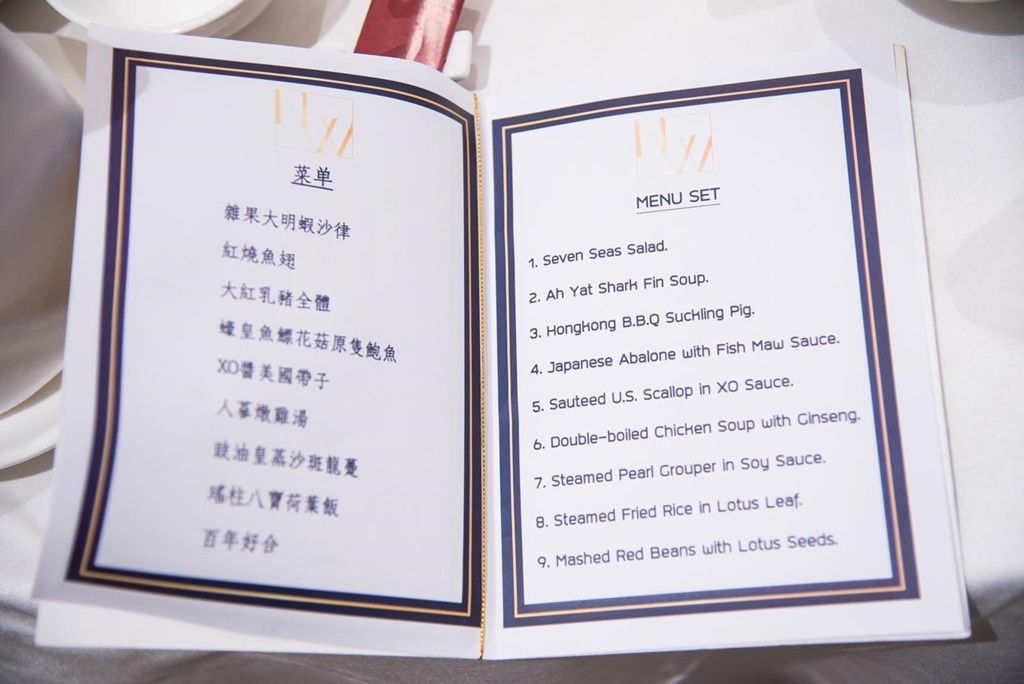 NW
菜单
雜果大明蝦沙律
紅燒魚翅
大紅乳豬全體
蠔皇魚鰾花菇原隻鮑魚
XO醬美國帶子
人蔘燉雞湯
豉油皇蒸沙斑龍躉
瑤柱八寶荷葉飯
百年好合
NW
MENU SET
1. Seven Seas Salad.
2. Ah Yat Shark Fin Soup.
3. Hongkong B.B.Q Suckling Pig.
4. Japanese Abalone with Fish Maw Sauce.
5. Sauteed U.S. Scallop in XO Sauce.
6. Double-boiled Chicken Soup with Ginseng.
7. Steamed Pearl Grouper in Soy Sauce.
8. Steamed Fried Rice in Lotus Leaf.
9. Mashed Red Beans with Lotus Seeds.